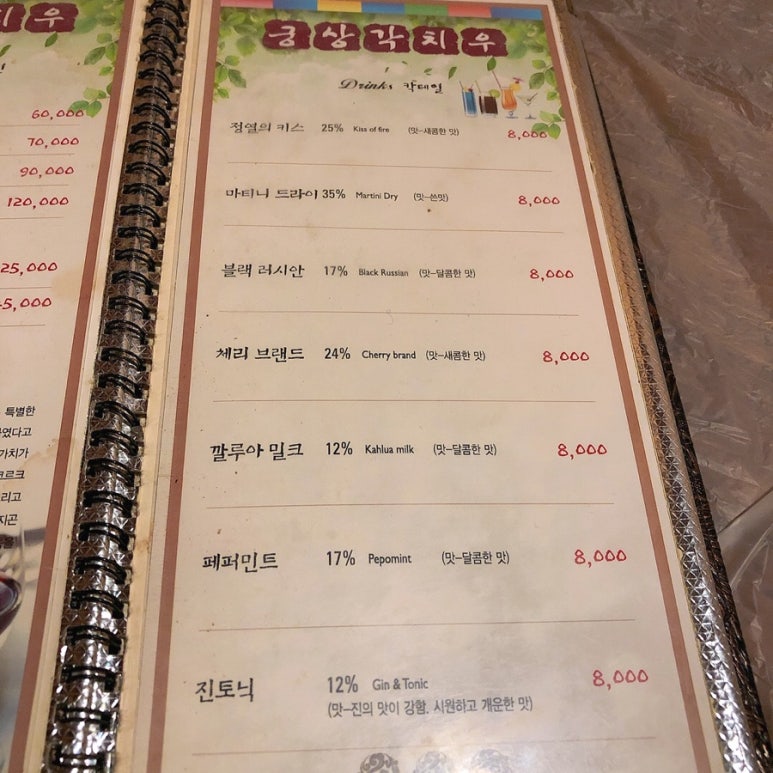 치우
60,000
70,000
90,000
120,000
25,000
5,000
특별한
였다고
가치가
코르크
리고
지곤
궁상각치우
Drinks 칵테일
정열의 키스 25% Kiss of fire (맛-새콤한 맛) 8,000
마티니 드라이 35% Martini Dry (맛-쓴맛) 8,000
블랙 러시안 17% Black Russian (맛-달콤한 맛) 8,000
체리 브랜드 24% Cherry brand (맛-새콤한 맛) 8,000
깔루아 밀크 12% Kahlua milk (맛-달콤한 맛) 8,000
페퍼민트 17% Pepomint (맛-달콤한 맛) 8,000
진토닉 12% Gin & Tonic 8,000
(맛-진의 맛이 강함. 시원하고 개운한 맛)